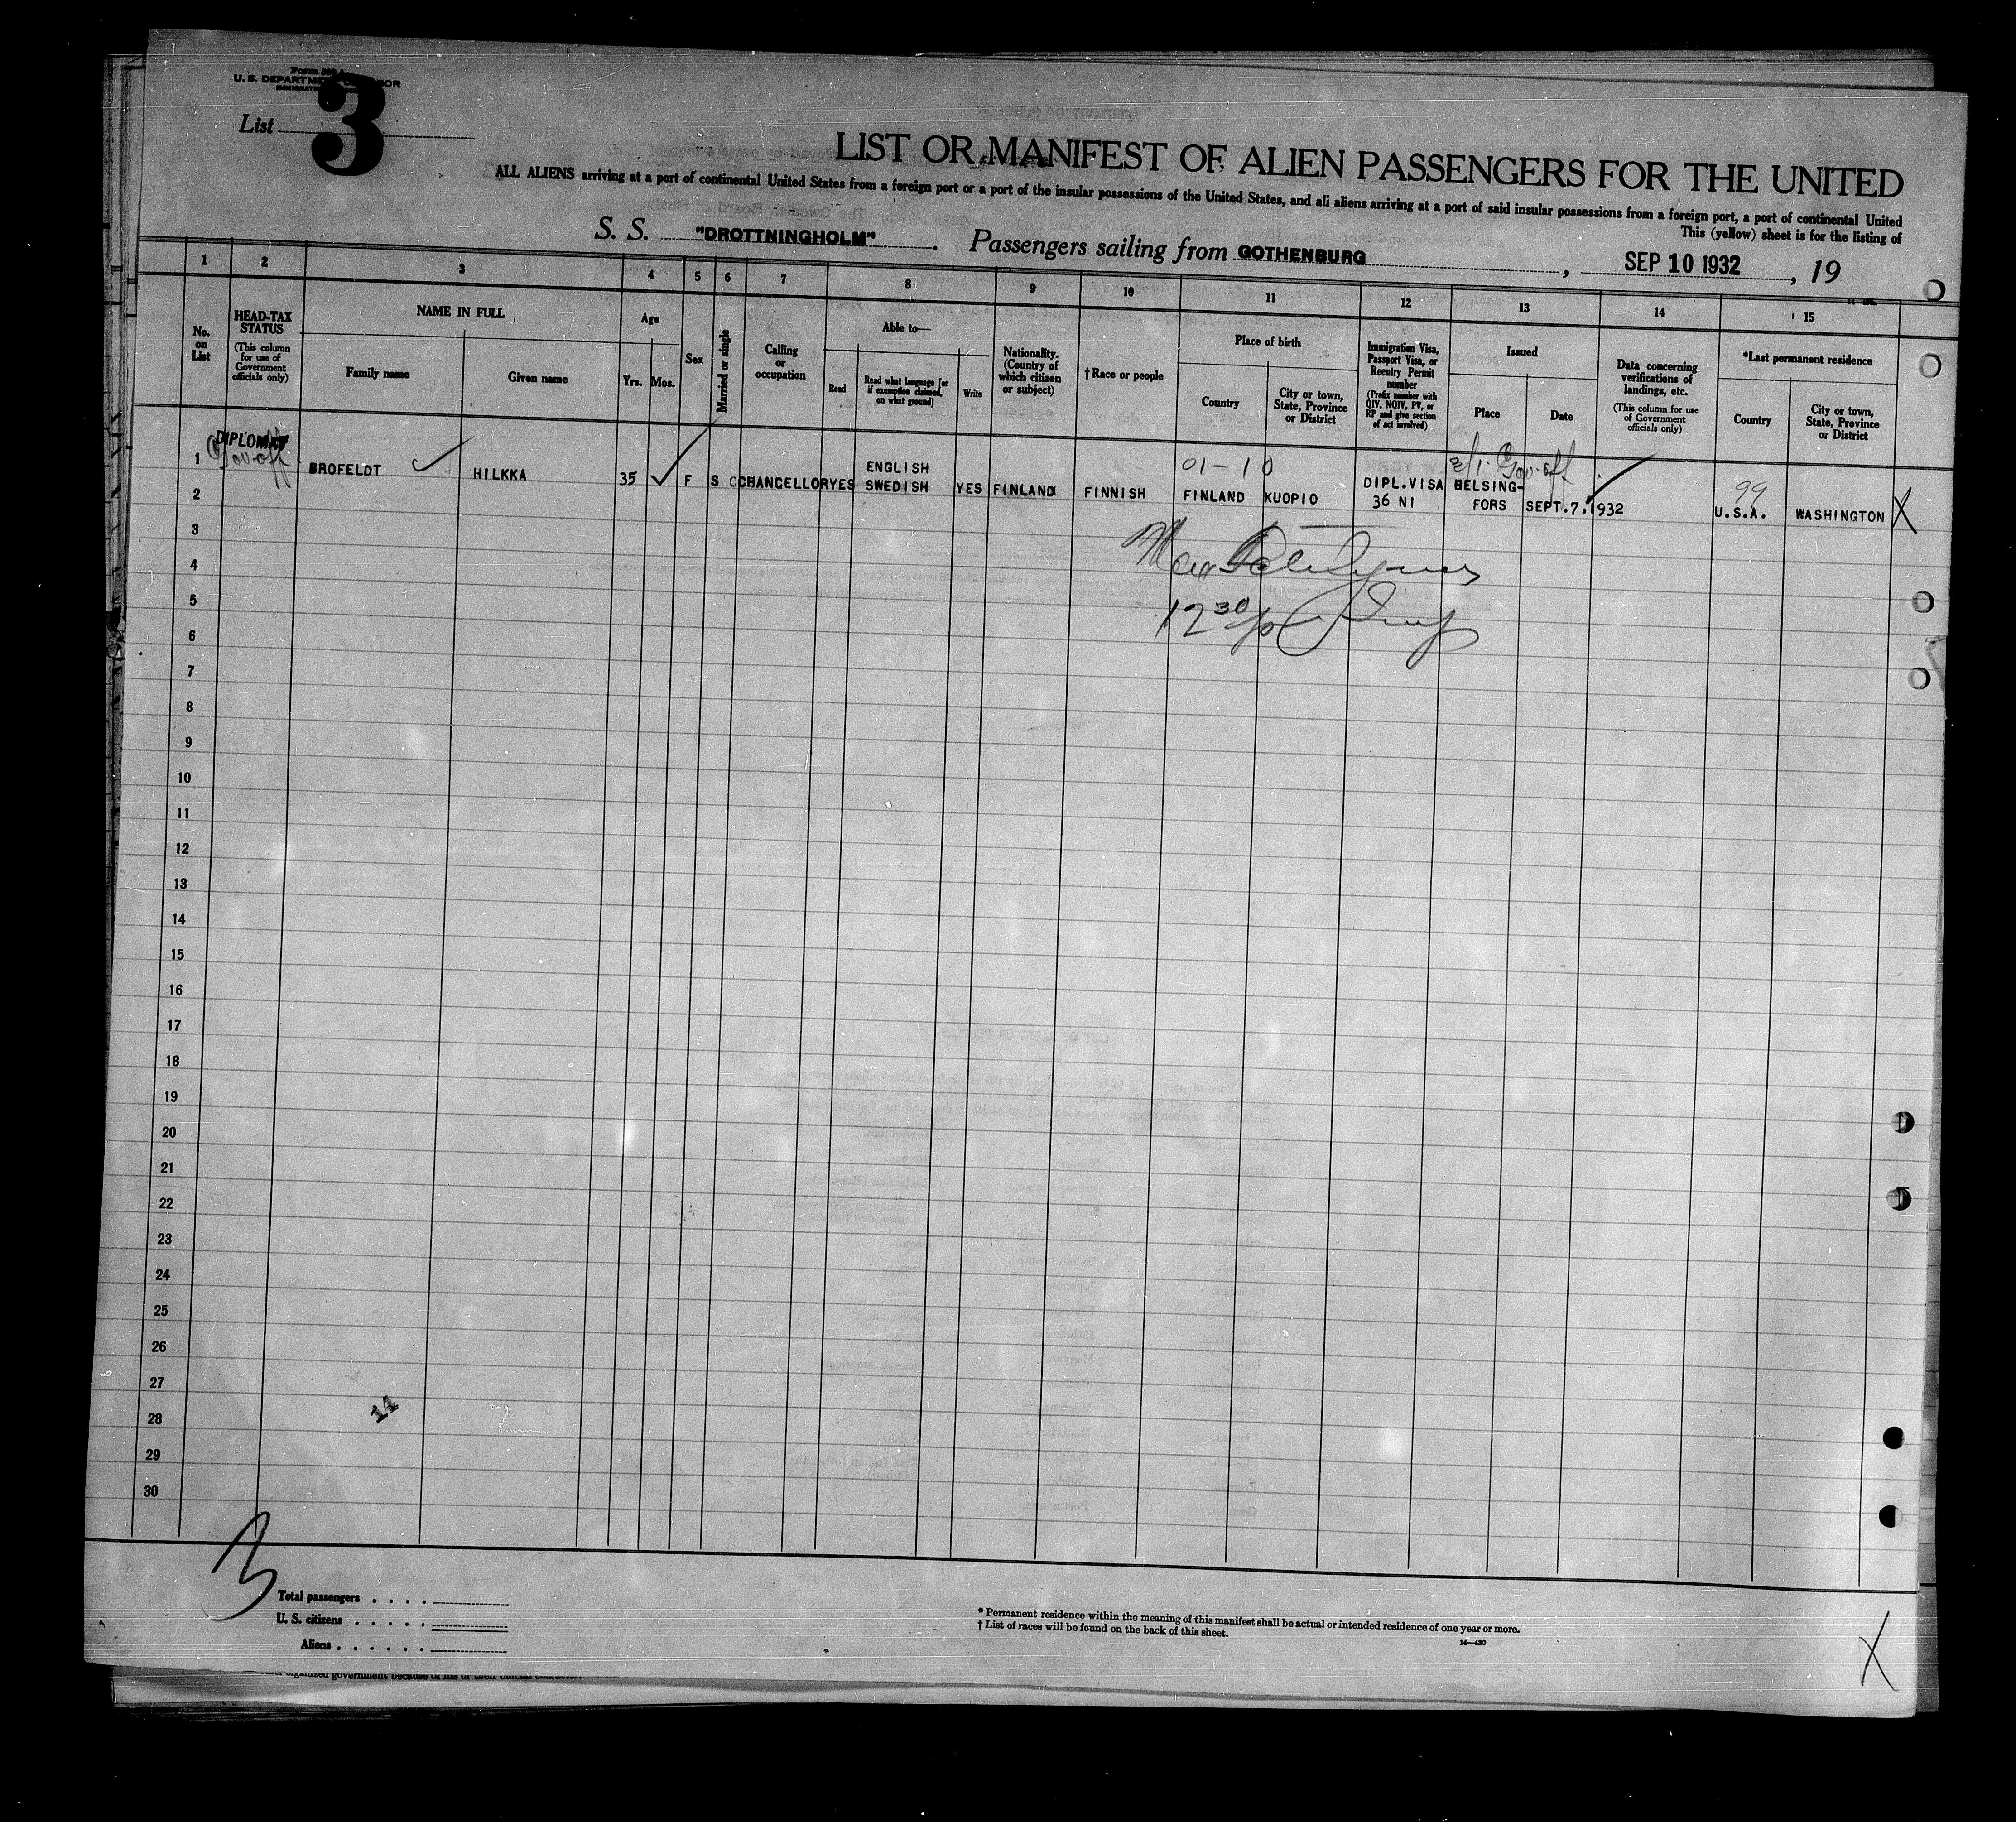 Form 500 A
U. S. DEPARTMENT OF LABOR
List 3
LIST OR MANIFEST OF ALIEN PASSENGERS FOR THE UNITED
ALL ALIENS arriving at a port of continental United States from a foreign port or a port of the insular possessions of the United States, and all aliens arriving at a port of said insular possessions from a foreign port, a port of continental United
This (yellow) sheet is for the listing of
S. S. "DROTTNINGHOLM". Passengers sailing from GOTHENBURG, SEP 10 1932, 19
1 2 3 4 5 6 7 8 9 10 11 12 13 14 15
No. on List
HEAD-TAX STATUS
(This column for use of Government officials only)
NAME IN FULL
Family name
Given name
Age
Yrs. Mos.
Sex
Married or single
Calling or occupation
Able to—
Read
Read what language [or if exemption claimed, on what ground]
Write
Nationality. (Country of which citizen or subject)
† Race or people
Place of birth
Country
City or town, State, Province or District
Immigration Visa, Passport Visa, or Reentry Permit number
(Prefix number with QIV, NQIV, PV, or RP and give section of act involved)
Issued
Place
Date
Data concerning verifications of landings, etc.
(This column for use of Government officials only)
*Last permanent residence
Country
City or town, State, Province or District
DIPLOMAT
Gov. off
01-10
Gov-off
99
1 BROFELDT HILKKA 35 F S CHANCELLOR YES ENGLISH SWEDISH YES FINLAND FINNISH FINLAND KUOPIO DIPL.VISA 36 NI HELSING-FORS SEPT.7.1932 U.S.A. WASHINGTON X
2
3
4
5
12 30 p
6
7
8
9
10
11
12
13
14
15
16
17
18
19
20
21
22
23
24
25
26
27
28
29
30
14
3
Total passengers . . . .
U. S. citizens . . . . .
Aliens . . . . . .
* Permanent residence within the meaning of this manifest shall be actual or intended residence of one year or more.
† List of races will be found on the back of this sheet.
14—430
X
organized government because of his or their official